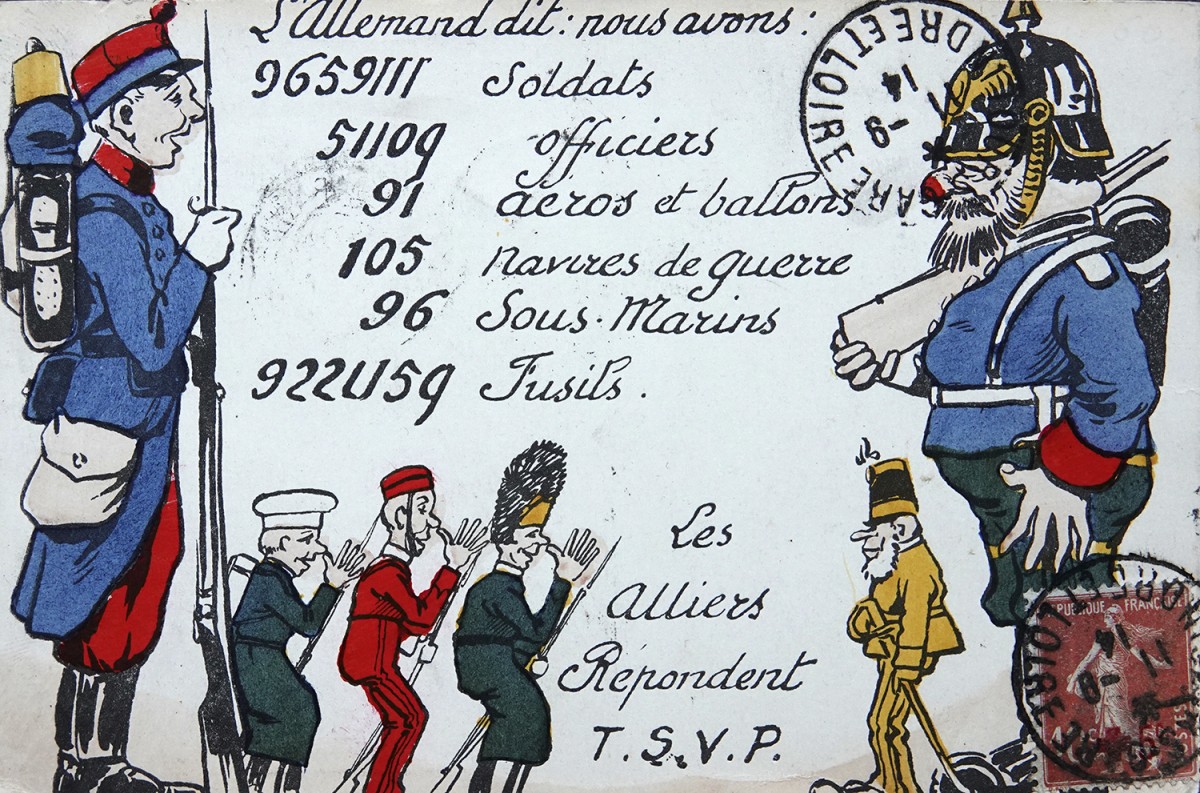 L'Allemand dit : nous avons :
9659111 Soldats
51109 officiers
91 aéros et ballons
105 Navires de guerre
96 Sous-Marins
922459 Fusils.
Les
Alliers
Répondent
T.S.V.P.
GARE INDRE ET LOIRE
14
9-
REPUBLIQUE FRANÇAISE
GARE INDRE ET LOIRE